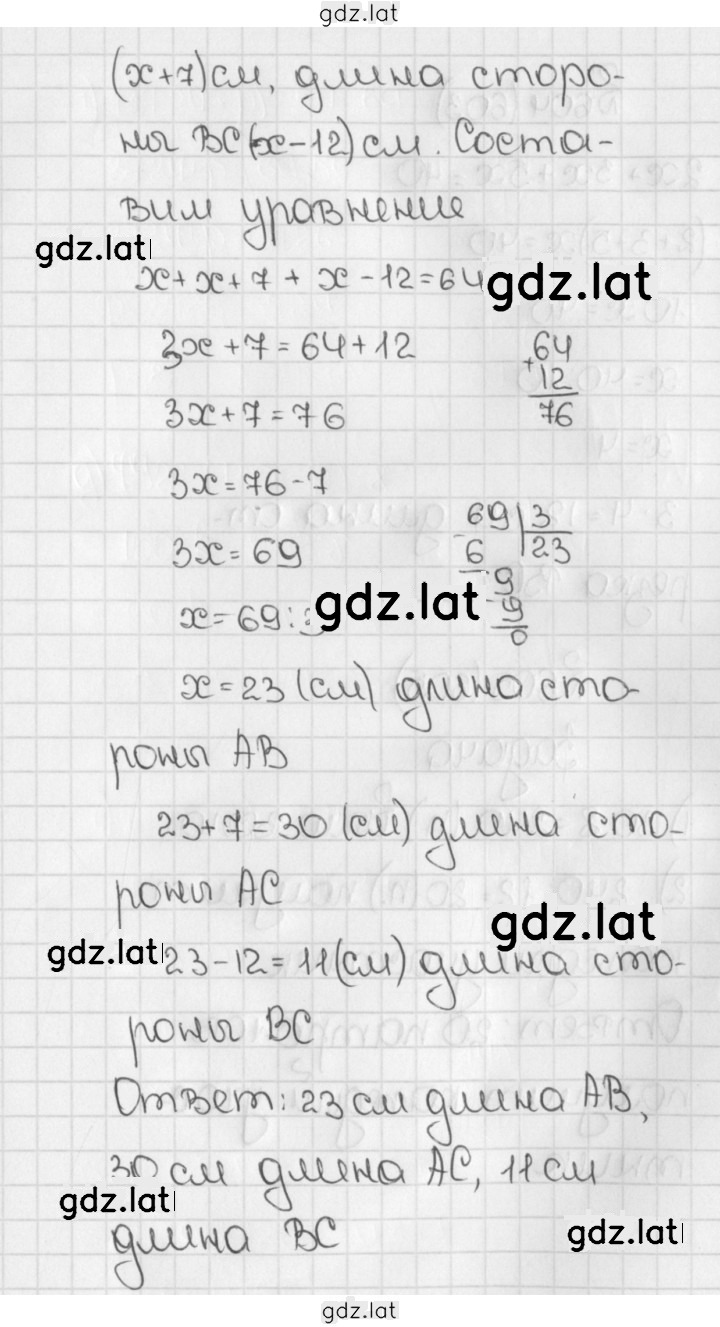 gdz.lat
(x+7) см, длина сторо-
ны BC (x-12) см. Соста-
вим уравнение
gdz.lat
x+x+7+x-12=64
gdz.lat
3x+7=64+12
64
+
12
76
3x+7=76
3x=76-7
3x=69
69 3
- 6 23
9
- 9
0
x=69:3
gdz.lat
x=23 (см) длина сто-
роны AB
23+7=30 (см) длина сто-
роны AC
gdz.lat
gdz.lat
23-12=11 (см) длина сто-
роны BC
Ответ: 23 см длина AB,
30 см длина AC, 11 см
gdz.lat
длина BC
gdz.lat
gdz.lat